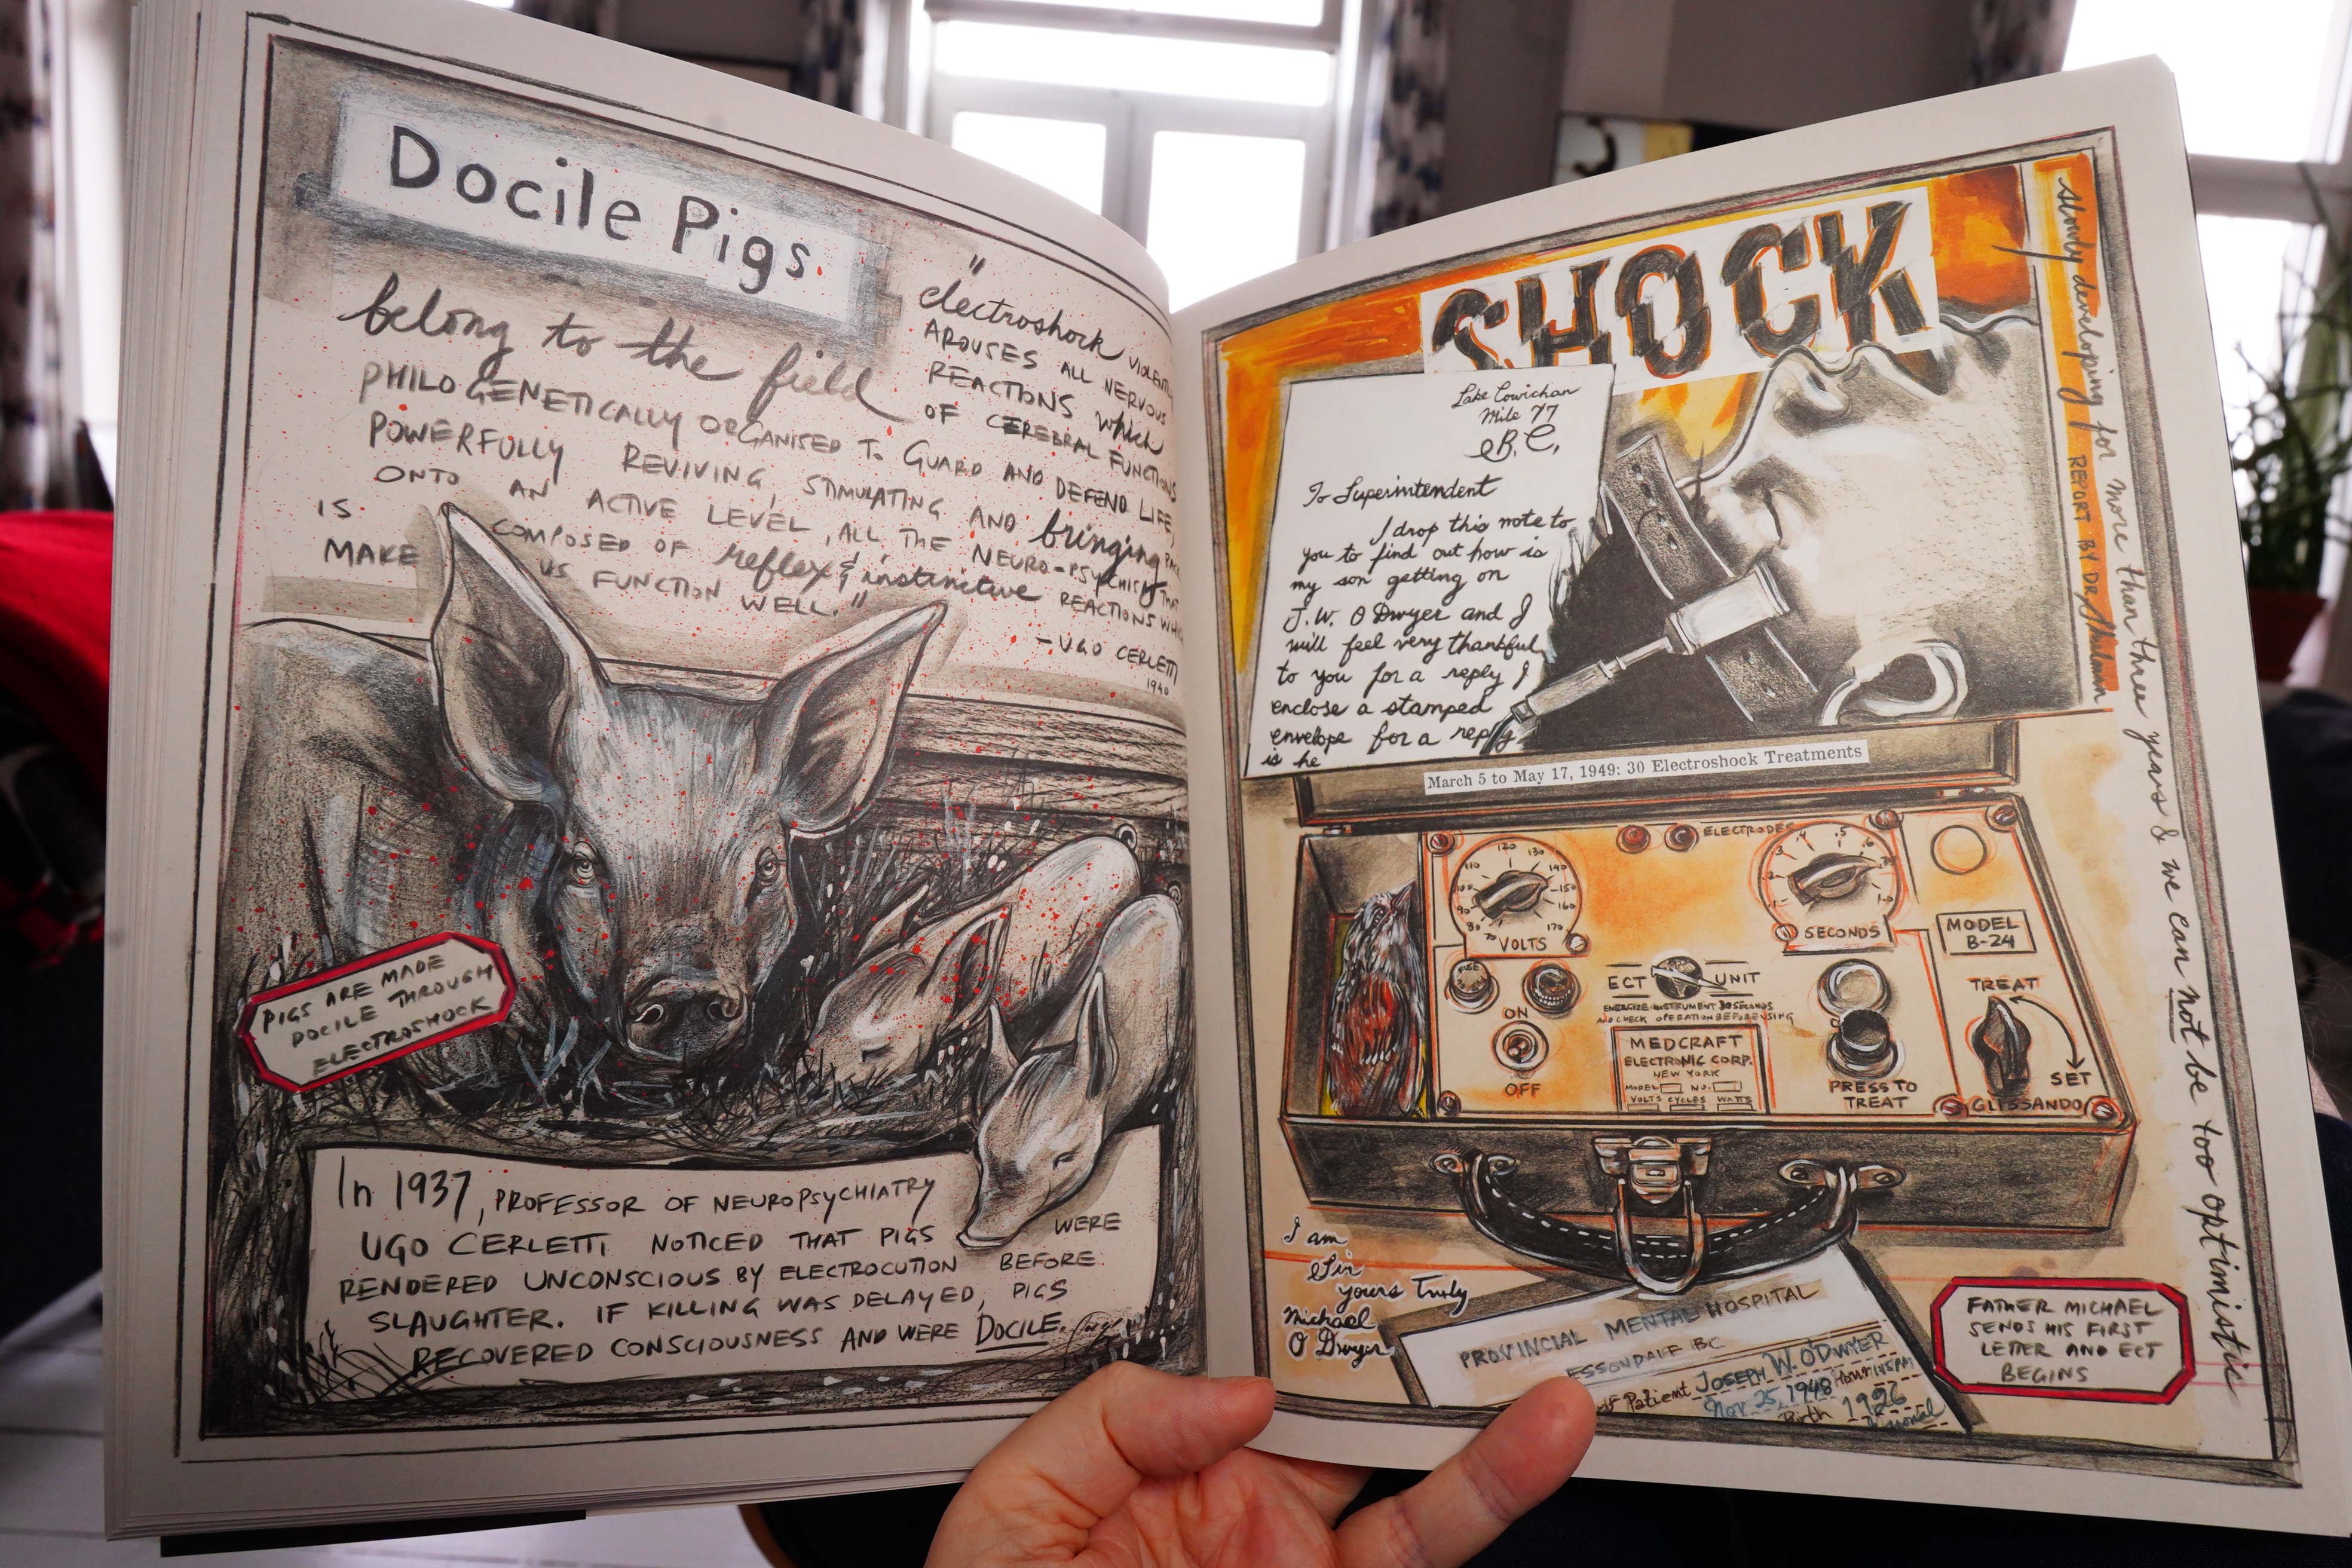 Docile Pigs
"electroshock
AROUSES ALL NERVOUS
REACTIONS which
belong to the field OF CEREBRAL FUNCTIONS
PHILOGENETICALLY ORGANISED TO GUARD AND DEFEND LIFE,
POWERFULLY REVIVING, STIMULATING AND bringing
ONTO AN ACTIVE LEVEL, ALL THE NEURO-PSYCHISM THAT
IS COMPOSED OF reflex & instinctive REACTIONS
MAKE US FUNCTION WELL."
- UGO CERLETTI
1940
PIGS ARE MADE
DOCILE THROUGH
ELECTROSHOCK
In 1937, PROFESSOR OF NEUROPSYCHIATRY
UGO CERLETTI NOTICED THAT PIGS WERE
RENDERED UNCONSCIOUS BY ELECTROCUTION BEFORE
SLAUGHTER. IF KILLING WAS DELAYED, PIGS
RECOVERED CONSCIOUSNESS AND WERE DOCILE.
SHOCK
Lake Cowichan
Mile 77
B.C.
To Superintendent
I drop this note to
you to find out how is
my son getting on
J.W. O Dwyer and I
will feel very thankful
to you for a reply I
enclose a stamped
envelope for a reply
is he
slowly developing for more than three years & we can not be too optimistic
REPORT BY DR.
March 5 to May 17, 1949: 30 Electroshock Treatments
ELECTRODES
70 80 90 100 110 120 130 140 150 160 170
VOLTS
.1 .2 .3 .4 .5 .6
SECONDS
MODEL
B-24
FUSE
ECT UNIT
ENERGIZE INSTRUMENT 30 SECONDS
AND CHECK OPERATION BEFORE USING
ON
OFF
MEDCRAFT
ELECTRONIC CORP.
NEW YORK
MODEL NO.
VOLTS CYCLES WATTS
PRESS TO
TREAT
TREAT
SET
GLISSANDO
I am
Sir
yours Truly
Michael
O Dwyer
PROVINCIAL MENTAL HOSPITAL
ESSONDALE BC
of Patient JOSEPH W. O'DWYER
Nov 25, 1948 Hour
Birth 1926
FATHER MICHAEL
SENDS HIS FIRST
LETTER AND ECT
BEGINS